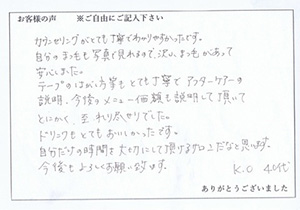 お客様の声　※ご自由にご記入下さい
カウンセリングがとても丁寧でわかりやすかったです。
自分のまつ毛も写真で見れるので、沢山まつ毛があって
安心しました。
テープのはがし方等もとても丁寧でアフターケアーの
説明、今後のメニュー価額も説明して頂いて
とにかく、至れり尽せりでした。
ドリンクもとてもおいしかったです。
自分だけの時間を大切にして頂けるサロンだなと思います。
今後もよろしくお願い致します。
K.O 40代
ありがとうございました